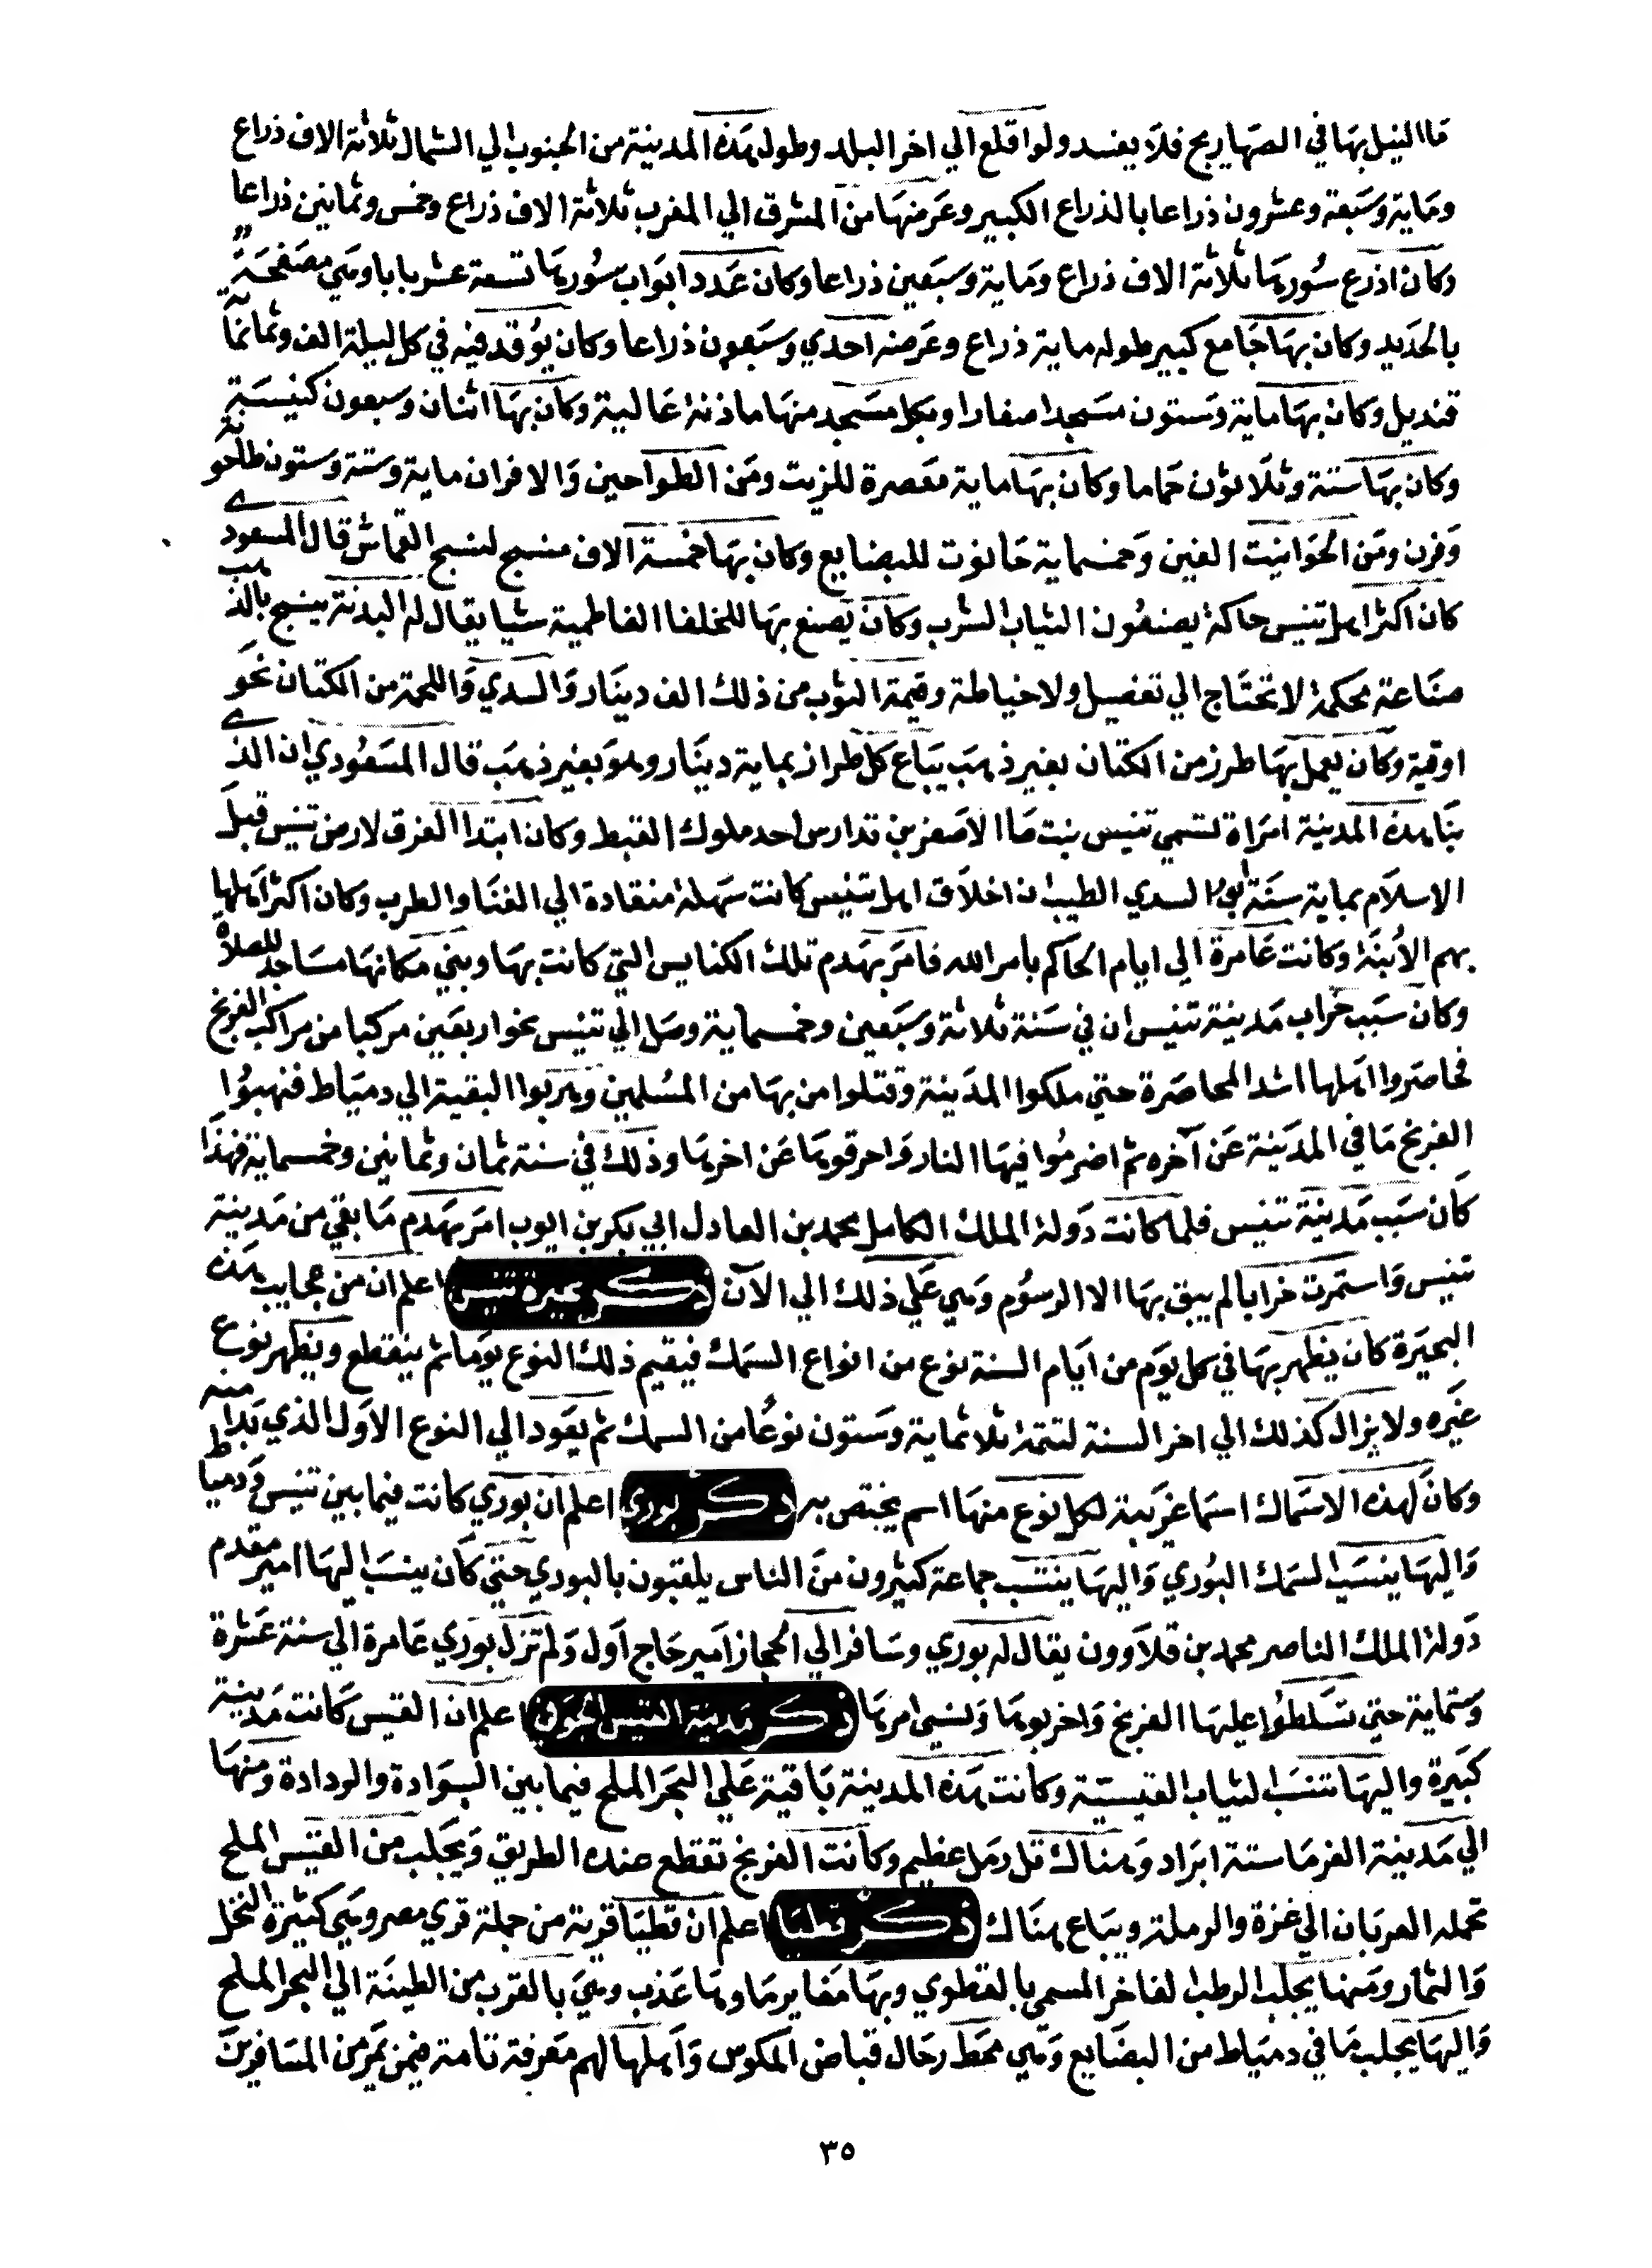 ماالنيل بها في الصهاريج فلا يفسد ولواقلع الي اخر البلد وطول هذه المدينة من الجنوب الي الشمال ثلاثة الاف ذراع
وماية وسبعة وعشرون ذراعا بالذراع الكبير وعرضها من المشرق الي المغرب ثلاثة الاف ذراع وخمس وثمانين ذراعا
وكان اذرع سورها ثلاثة الاف ذراع وماية وسبعين ذراعا وكان عدد ابواب سورها تسعة عشر بابا وهي مصفحة
بالحديد وكان بها جامع كبير طوله ماية ذراع وعرضه احدي وسبعون ذراعا وكان يوقد فيه في كل ليلة الف وثمانماية
قنديل وكان بها ماية وستون مسجدا صغارا وبكل مسجد منها ماذنة عالية وكان بها اثنان وسبعون كنيسة
وكان بها ستة وثلاثون حماما وكان بها ماية معصرة للزيت ومن الطواحين والافران ماية وستة وستون طاحونة
وفرن ومن الحوانيت الفين وخمسماية حانوت للبضايع وكان بها خمسة الاف منسج لنسج القماش قال المسعودي
كان اكثر اهل تنيس حاكة يصنعون الثياب الشرب وكان يصنع بها للخلفا الفاطمية شيا يقال له البدنة ينسج بالذهب
صناعة محكمة لا تحتاج الي تفصيل ولا خياطة وقيمة الثوب من ذلك الف دينار والسدي واللحمة من الكتان نحو
اوقية وكان يعمل بها طرز من الكتان بغير ذهب يباع كل طراز بماية دينار وهو بغير ذهب قال المسعودي ان الذي
بنا هذه المدينة امراة تسمي تنيس بنت صا الاصغر بن تدارس احد ملوك القبط وكان ابتدا الغرق لارض تنيس قبل
الاسلام بماية سنة السدي الطيب ان اخلاق اهل تنيس كانت سهلة منقادة الي الغنا والطرب وكان اكثر اهلها
بهم الابنة وكانت عامرة الي ايام الحاكم بامر الله فامر بهدم تلك الكنايس التي كانت بها وبني مكانها مساجد للصلاة
وكان سبب خراب مدينة تنيس ان في سنة ثلاثة وسبعين وخمسماية وصل الي تنيس نحو اربعين مركبا من مراكب الفرنج
فحاصروا اهلها اشد المحاصرة حتي ملكوا المدينة وقتلوا من بها من المسلمين وهربوا البقية الي دمياط فنهبوا
الفرنج ما في المدينة عن آخره ثم اضرموا فيها النار واحرقوها عن اخرها وذلك في سنة ثمان وثمانين وخمسماية فهذا
كان سبب مدينة تنيس فلما كانت دولة الملك الكامل محمد بن العادل ابي بكر بن ايوب امر بهدم ما بقي من مدينة
تنيس واستمرت خرابا لم يبق بها الا الرسوم وهي علي ذلك الي الآن ذكر بحيرة تنيس اعلم ان من عجايب هذه
البحيرة كان يظهر بها في كل يوم من ايام السنة نوع من انواع السمك فيقيم ذلك النوع يوما ثم ينقطع ويظهر نوع
غيره ولا يزال كذلك الي اخر السنة لتتمة ثلاثماية وستون نوعا من السمك ثم يعود الي النوع الاول الذي بدا منه
وكان لهذه الاسماك اسما غريبة لكل نوع منها اسم يختص به ذكر بوري اعلم ان بوري كانت فيما بين تنيس ودمياط
واليها ينسب السمك البوري واليها ينتسب جماعة كثيرون من الناس يلقبون بالبوري حتي كان ينسب اليها امير مقدم
دولة الملك الناصر محمد بن قلاوون يقال له بوري وسافر الي الحجاز امير حاج اول ولم تزل بوري عامرة الي سنة عشرة
وستماية حتي تسلطوا عليها الفرنج واخربوها ونسي امرها ذكر مدينة القيس اعلم ان القيس كانت مدينة
كبيرة واليها تنسب الثياب القيسية وكانت هذه المدينة باقية علي البحر الملح فيما بين السوادة والوردادة ومنها
الي مدينة الفرما ستة ابراد وهناك تل رمل عظيم وكانت الفرنج تقطع عنده الطريق ويجلب من القيس الملح
تحمله العربان الي غزة والرملة ويباع هناك ذكر قطيا اعلم ان قطيا قرية من جملة قري مصر وهي كثيرة النخل
والثمار ومنها يجلب الرطب الفاخر المسمي بالقطوي وبها مغاير ماوها عذب وهي بالقرب من الطينة الي البحر الملح
واليها يجلب ما في دمياط من البضايع وهي محط رحال قباض المكوس واهلها لهم معرفة تامة فيمن يمر من المسافرين
٣٥